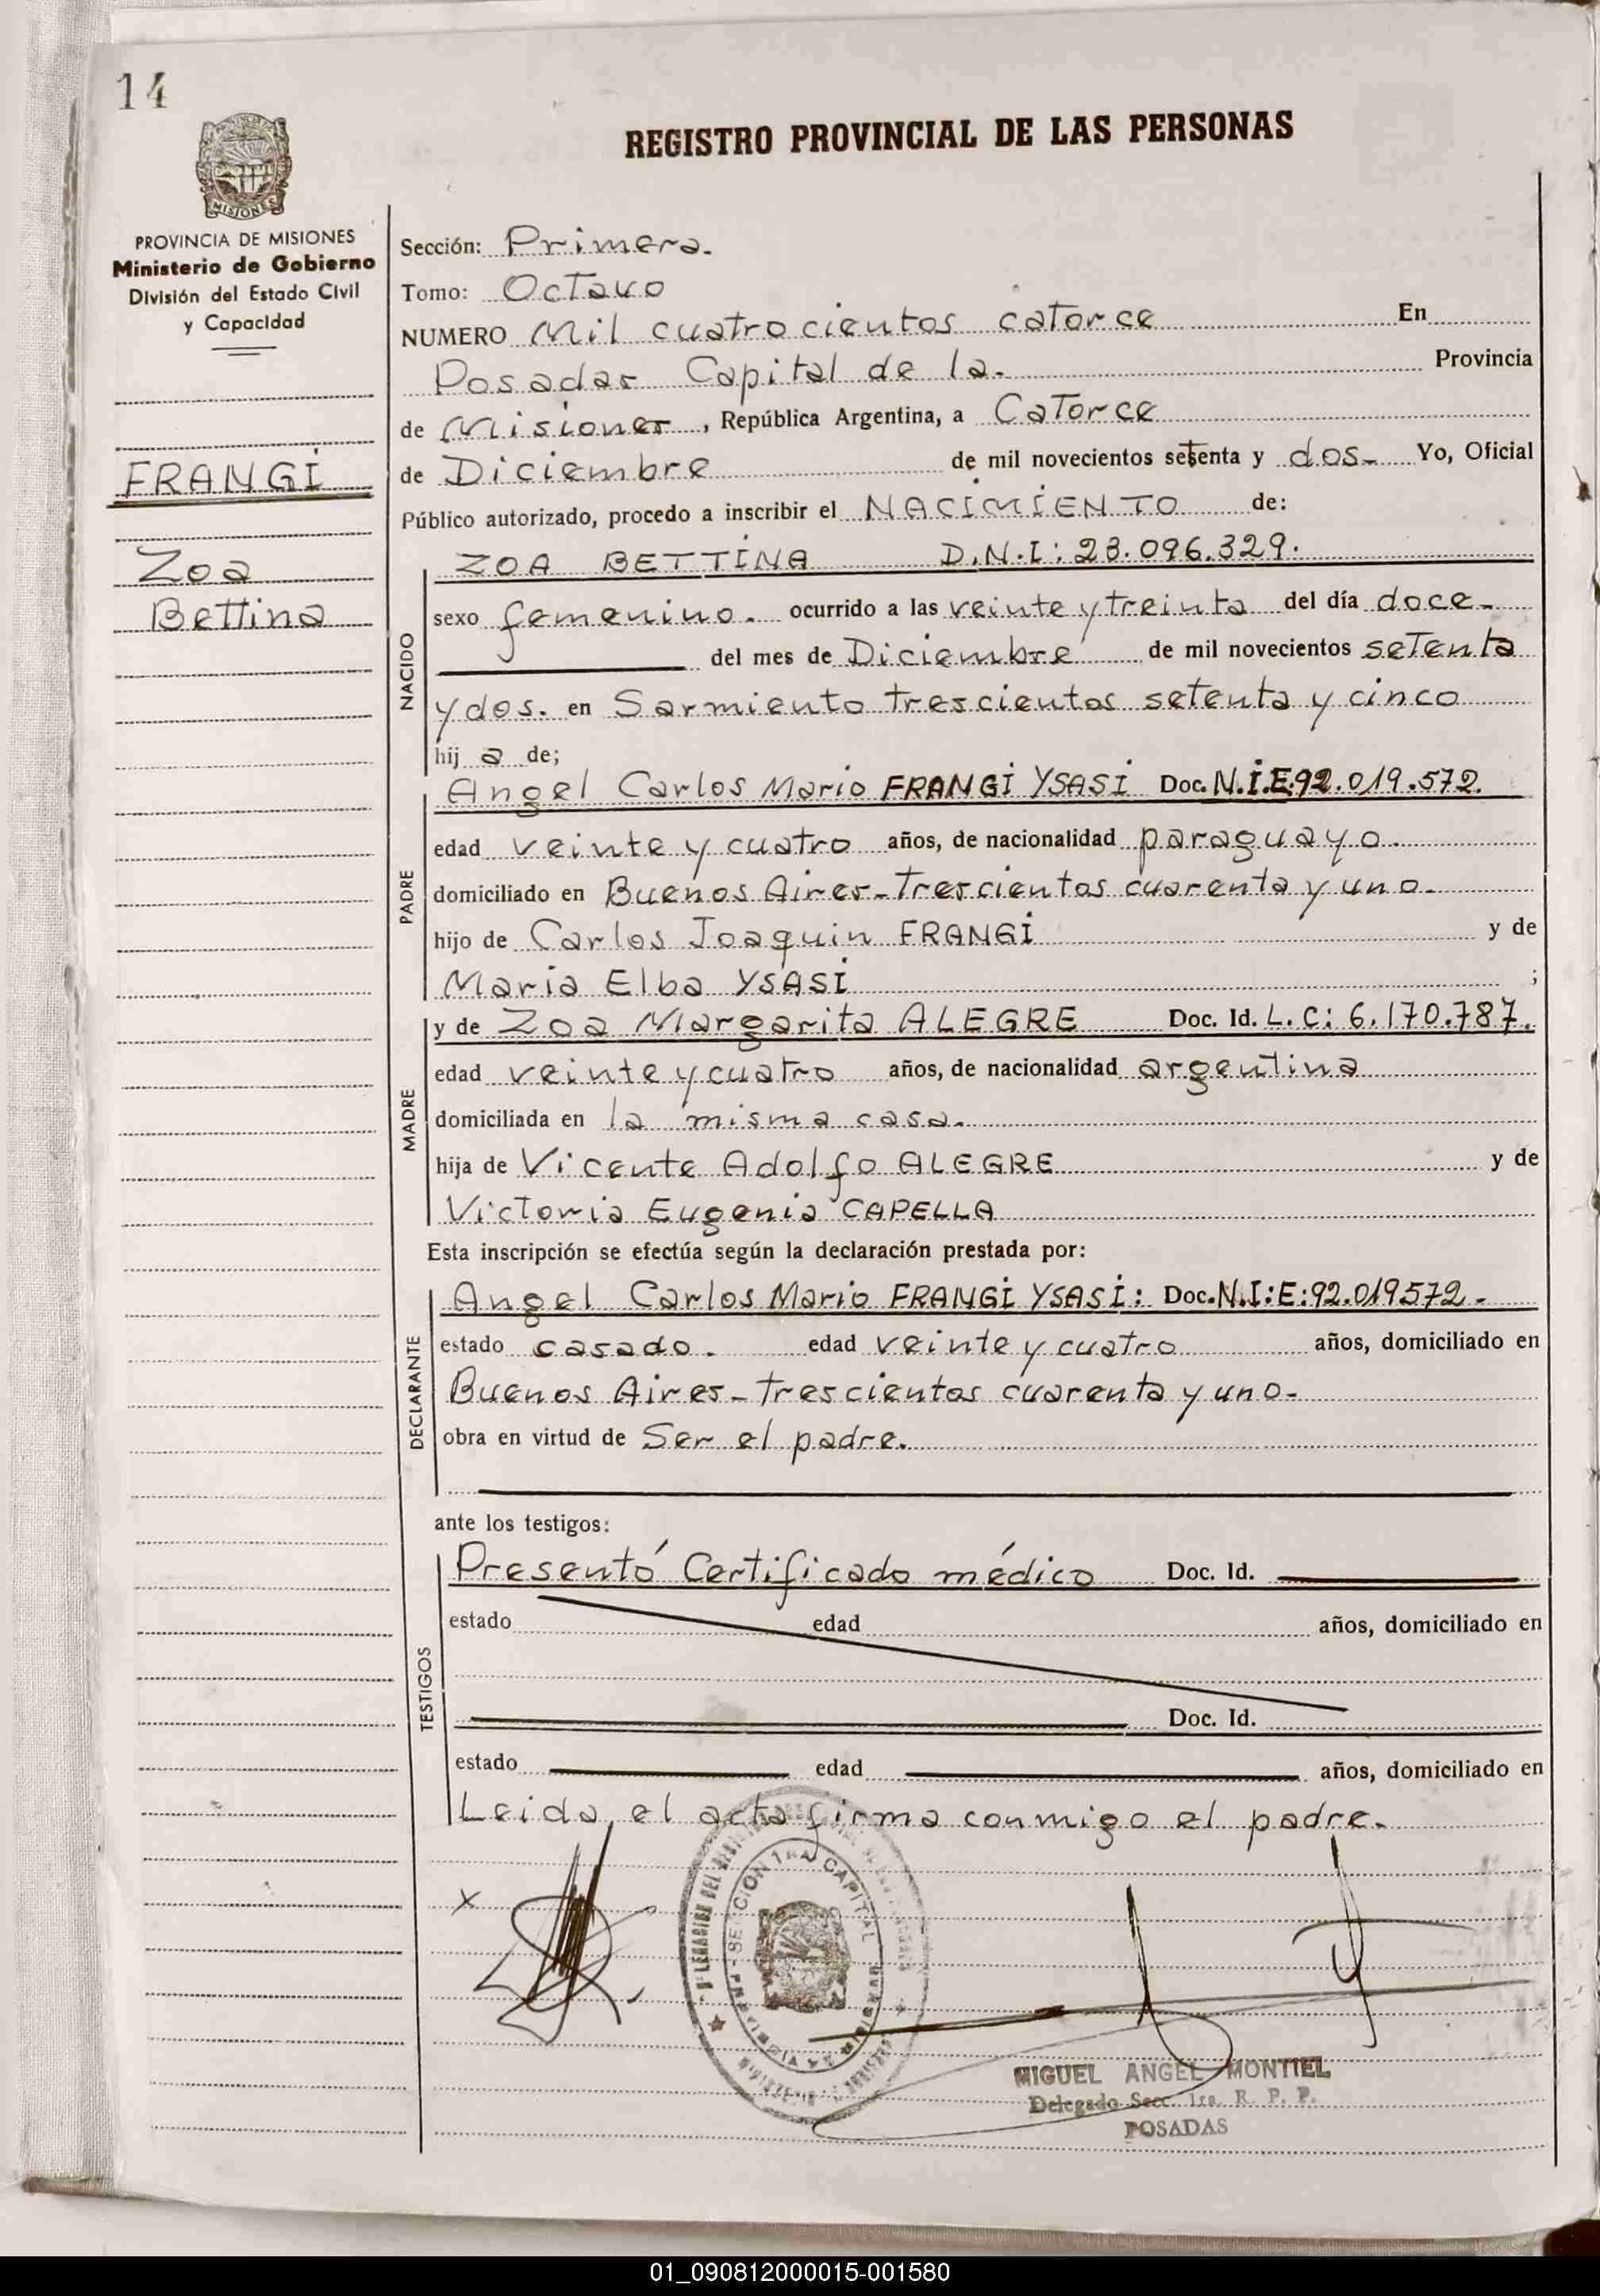 14
REGISTRO PROVINCIAL DE LAS PERSONAS
MISIONES
PROVINCIA DE MISIONES
Ministerio de Gobierno
División del Estado Civil
y Capacidad
FRANGI
Zoa
Bettina
Sección: Primera.
Tomo: Octavo
NUMERO Mil cuatrocientos catorce En
Posadas Capital de la. Provincia
de Misiones, República Argentina, a Catorce
de Diciembre de mil novecientos setenta y dos. Yo, Oficial
Público autorizado, procedo a inscribir el NACIMIENTO de:
NACIDO
ZOA BETTINA D.N.I: 23.096.329.
sexo femenino. ocurrido a las veinte y treinta del día doce
del mes de Diciembre de mil novecientos setenta
y dos. en Sarmiento trescientos setenta y cinco
hij a de;
PADRE
Angel Carlos Mario FRANGI YSASI Doc. N.I.E:92.019.572.
edad veinte y cuatro años, de nacionalidad paraguayo.
domiciliado en Buenos Aires-Trescientos cuarenta y uno.
hijo de Carlos Joaquin FRANGI y de
Maria Elba YSASI ;
MADRE
y de Zoa Margarita ALEGRE Doc. Id. L.C: 6.170.787.
edad veinte y cuatro años, de nacionalidad argentina
domiciliada en la misma casa.
hija de Vicente Adolfo ALEGRE y de
Victoria Eugenia CAPELLA
Esta inscripción se efectúa según la declaración prestada por:
DECLARANTE
Angel Carlos Mario FRANGI YSASI: Doc. N.I:E:92.019572.
estado casado. edad veinte y cuatro años, domiciliado en
Buenos Aires-Trescientos cuarenta y uno-
obra en virtud de Ser el padre.
ante los testigos:
TESTIGOS
Presentó Certificado médico Doc. Id.
estado edad años, domiciliado en
Doc. Id.
estado edad años, domiciliado en
Leida el acta firma conmigo el padre.
SECCION 1RA. CAPITAL
MIGUEL ANGEL MONTIEL
Delegado Secc. 1ra. R. P. P.
POSADAS
01_090812000015-001580